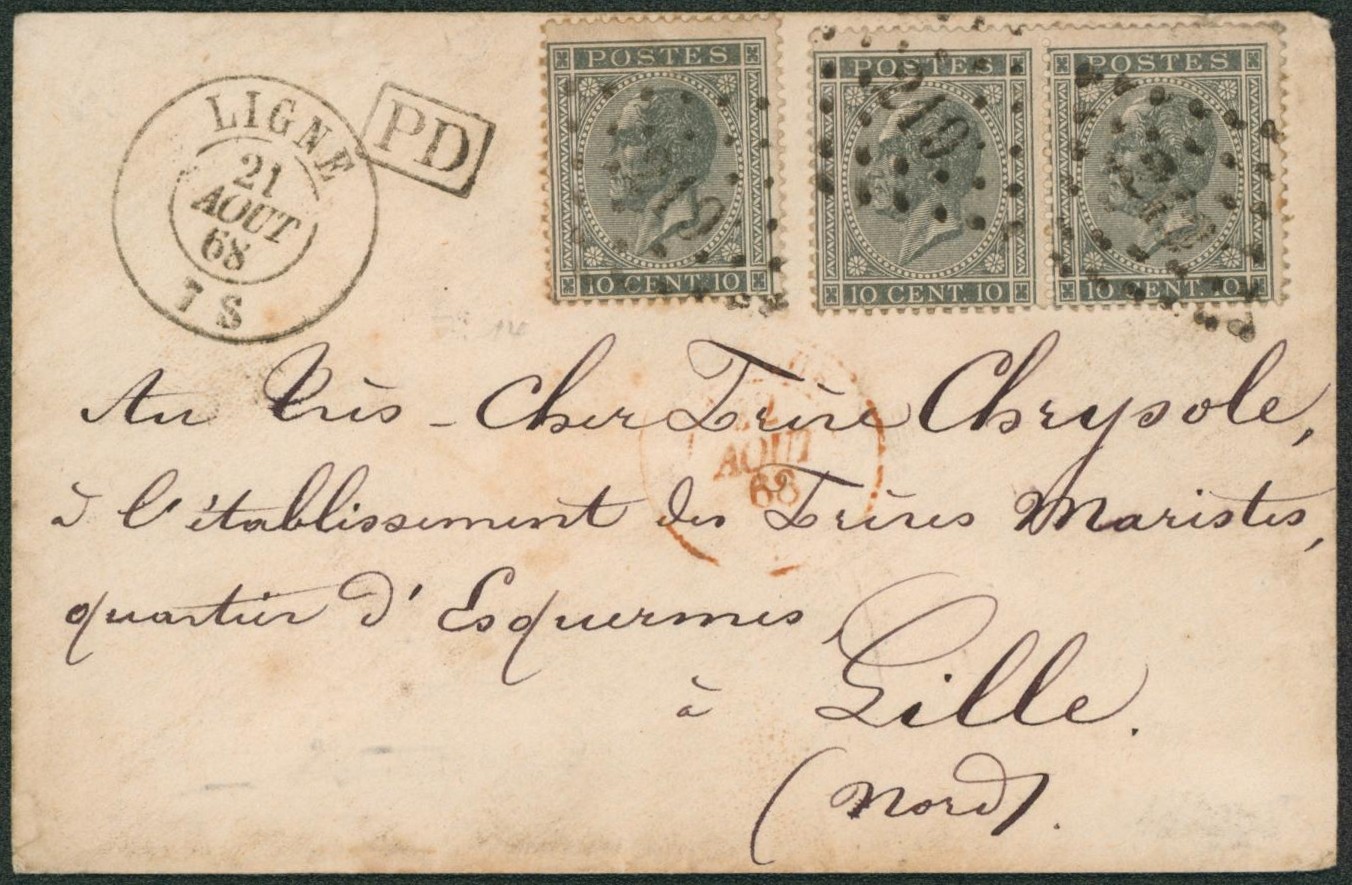 LIGNE
21
AOUT
68
7 S
PD
POSTES
10 CENT. 10
POSTES
10 CENT. 10
POSTES
10 CENT. 10
219
AOUT
68
Au très-cher Frère Chrysole,
à l'établissement des Frères Maristes,
quartier d'Esquermes
à Lille.
(Nord).